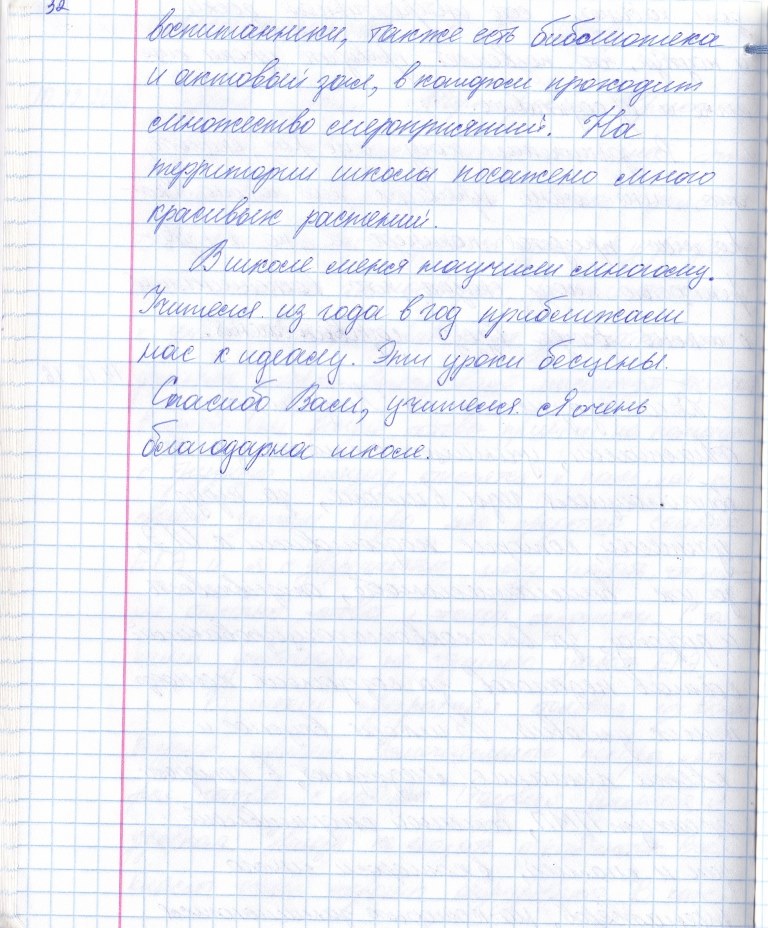 32
воспитанники, также есть библиотека
и актовый зал, в котором проходит
множество мероприятий. На
территории школы посажено много
красивых растений.
В школе меня научили многому.
Учителя из года в год приближали
нас к идеалу. Эти уроки бесценны.
Спасибо Вам, учителя. Я очень
благодарна школе.